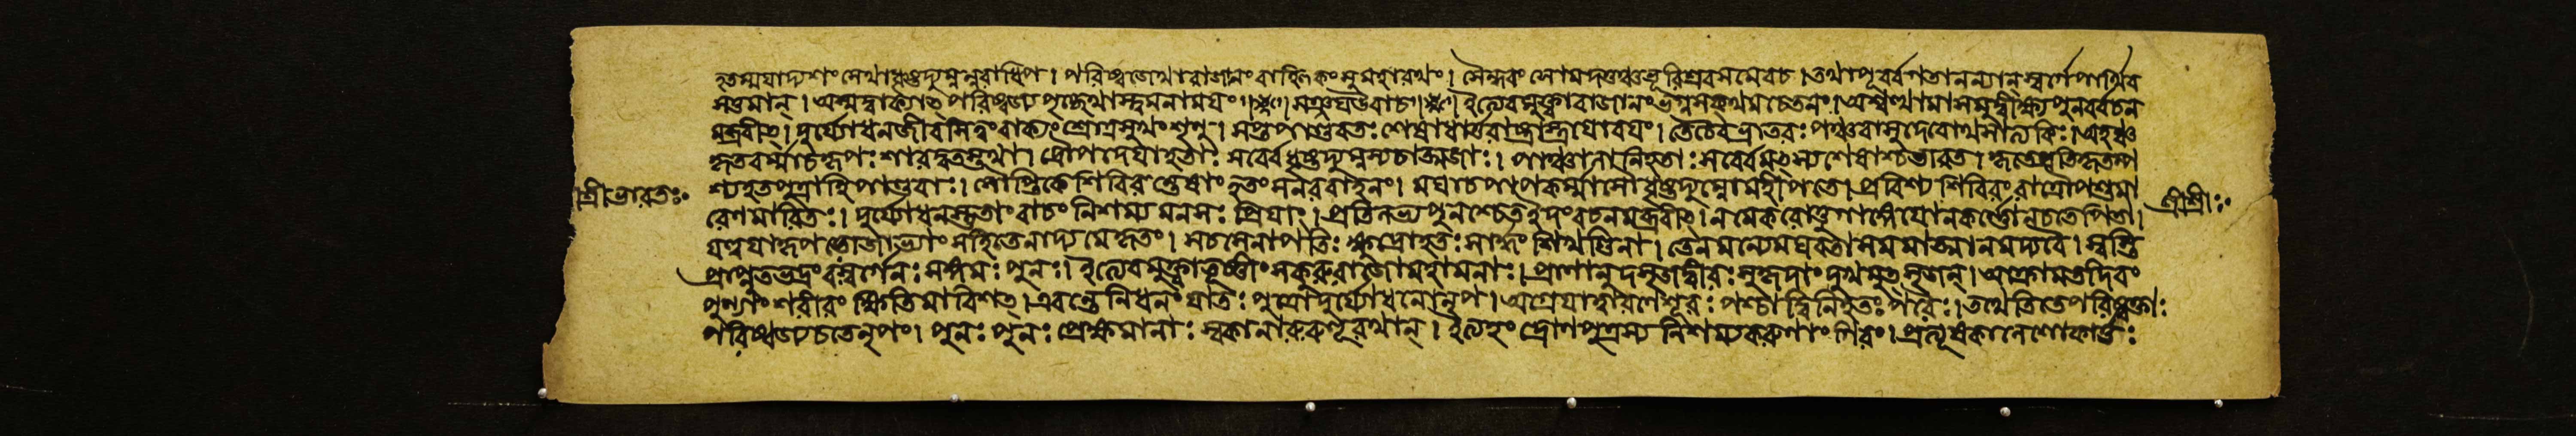 হৃতম্ময়াদ্যশংসেথাধৃষ্টদ্যুম্নন্নরাধিপ। পরিষ্বজেথারাজানংবাহ্লিকংসুমহারথং। সৈন্ধবং সোমদত্তঞ্চভূরিশ্রবসমেবচ। তথাপূর্ব্বগতানন্যান্ স্বর্গেপার্থিব
সত্তমান্। অস্মদ্বাক্যাৎ পরিষ্বজ্যপৃচ্ছেথাস্ত্বমনাময়ং॥ সঞ্জয়উবাচ॥ ইত্যেবমুক্ত্বারাজানংভগ্নসক্থমচেতনং। অশ্বত্থামাসমুদ্বীক্ষ্যপুনর্ব্বচন
মব্রবীৎ। দুর্য্যোধনজীবসিত্বংবাক্যংশ্রোত্রসুখংশৃণু। সপ্তপাণ্ডবতঃ শেষাধার্ত্তরাষ্ট্রাস্ত্রয়োবয়ং। তেচৈবভ্রাতরঃ পঞ্চবাসুদেবোথসাত্যকিঃ। অহঞ্চ
কৃতবর্ম্মাচকৃপঃ শারদ্বতস্তথা। দ্রৌপদেয়াহতাঃ সর্ব্বেধৃষ্টদ্যুম্নস্যচাত্মজাঃ। পাঞ্চালানিহতাঃ সর্ব্বেমৎস্যশেষাশ্চভারত। কৃতেপ্রতিকৃতম্প
শ্যহতপুত্রাহিপাণ্ডবাঃ। সৌপ্তিকেশিবিরন্তেষাং হতংসনরবাহনং। ময়াচপাপকর্ম্মাসৌধৃষ্টদ্যুম্নোমহীপতে। প্রবিশ্য শিবিরংরাত্রৌপশুমা
শ্রীভারতঃ শ্রীশ্রীঃ
রেণমারিতঃ। দুর্য্যোধনস্তুতাংবাচং নিশম্যমনসঃ প্রিয়াং। প্রতিলভ্যপুনশ্চেতইদংবচনমব্রবীৎ। নমেকরোত্তদ্গাঙ্গেয়োনকর্ণোনচতেপিতা।
যত্ত্বয়াকৃপভোজাভ্যাং সহিতেনাদ্যমেকৃতং। সচসেনাপতিঃ ক্ষুদ্রোহতঃ সার্দ্ধং শিখণ্ডিনা। তেনমন্যেমঘবতাসমমাত্মানমদ্যবৈ। স্বস্তি
প্রাপ্নুতভদ্রংবঃস্বর্গেনঃ সঙ্গমঃ পুনঃ। ইত্যেবমুক্ত্বাতূষ্ণীং সকুরুরাজোমহামনাঃ। প্রাণানুদসৃজদ্বীরঃ সুহৃদাং দুঃখমুৎসৃজন্। অপাক্রামতদিবং
পুণ্যাংশরীরং ক্ষিতিমাবিশত্। এবন্তেনিধনংযাতঃ পুত্রোদুর্য্যোধনোনৃপ। অগ্রেযাত্বারণেশূরঃ পশ্চাদ্বিনিহতঃ পরৈঃ। তথৈবতেপরিষ্বক্তাঃ
পরিষ্বজ্যচতেনৃপং। পুনঃ পুনঃ প্রেক্ষমানাঃ স্বকানারুরুহূরথান্। ইত্যেবংদ্রোণপুত্রস্য নিশম্যকরুণাং গিরং। প্রত্যূষকালেশোকার্ত্তঃ